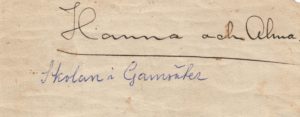 Hanna och Alma.
Skolan i Gamsäter